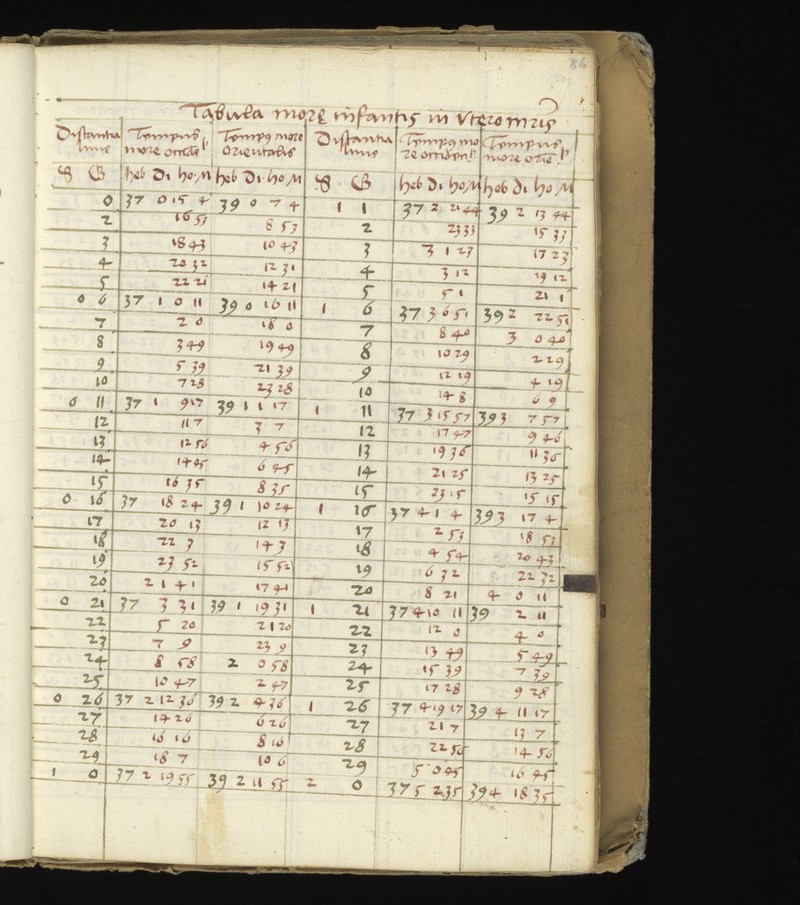 86
Tabula morę infantis in vtero mris
Distantia lune Tempus more occide Tempus more orientalis Distantia lune Tempus more occiden Tempus more orie
S G heb Di ho M heb di ho M S G heb di ho M heb di ho M
0 37 0 15 4 39 0 7 4 1 1 37 2 21 44 39 2 13 44
2 16 53 8 53 2 23 33 15 33
3 18 43 10 43 3 3 1 23 17 23
4 20 32 12 31 4 3 12 19 12
5 22 21 14 21 5 5 1 21 1
0 6 37 1 0 11 39 0 16 11 1 6 37 3 6 51 39 2 22 51
7 2 0 18 0 7 8 40 3 0 40
8 3 49 19 49 8 10 29 2 29
9 5 39 21 39 9 12 19 4 19
10 7 28 23 28 10 14 8 6 9
0 11 37 1 9 17 39 1 1 17 1 11 37 3 15 57 39 3 7 57
12 11 7 3 7 12 17 47 9 46
13 12 56 4 56 13 19 36 11 36
14 14 45 6 45 14 21 25 13 25
15 16 35 8 35 15 23 15 15 15
0 16 37 18 24 39 1 10 24 1 16 37 4 1 4 39 3 17 4
17 20 13 12 13 17 2 53 18 53
18 22 3 14 3 18 4 54 20 43
19 23 52 15 52 19 6 32 22 32
20 2 1 41 17 41 20 8 21 4 0 11
0 21 37 3 31 39 1 19 31 1 21 37 4 10 11 39 2 11
22 5 20 21 20 22 12 0 4 0
23 7 9 23 9 23 13 49 5 49
24 8 58 2 0 58 24 15 39 7 39
25 10 47 2 47 25 17 28 9 28
0 26 37 2 12 36 39 2 4 36 1 26 37 4 19 17 39 4 11 17
27 14 26 6 26 27 21 7 13 7
28 16 16 8 16 28 22 56 14 56
29 18 7 10 6 29 5 0 45 16 45
1 0 37 2 19 55 39 2 11 55 2 0 37 5 2 35 39 4 18 35